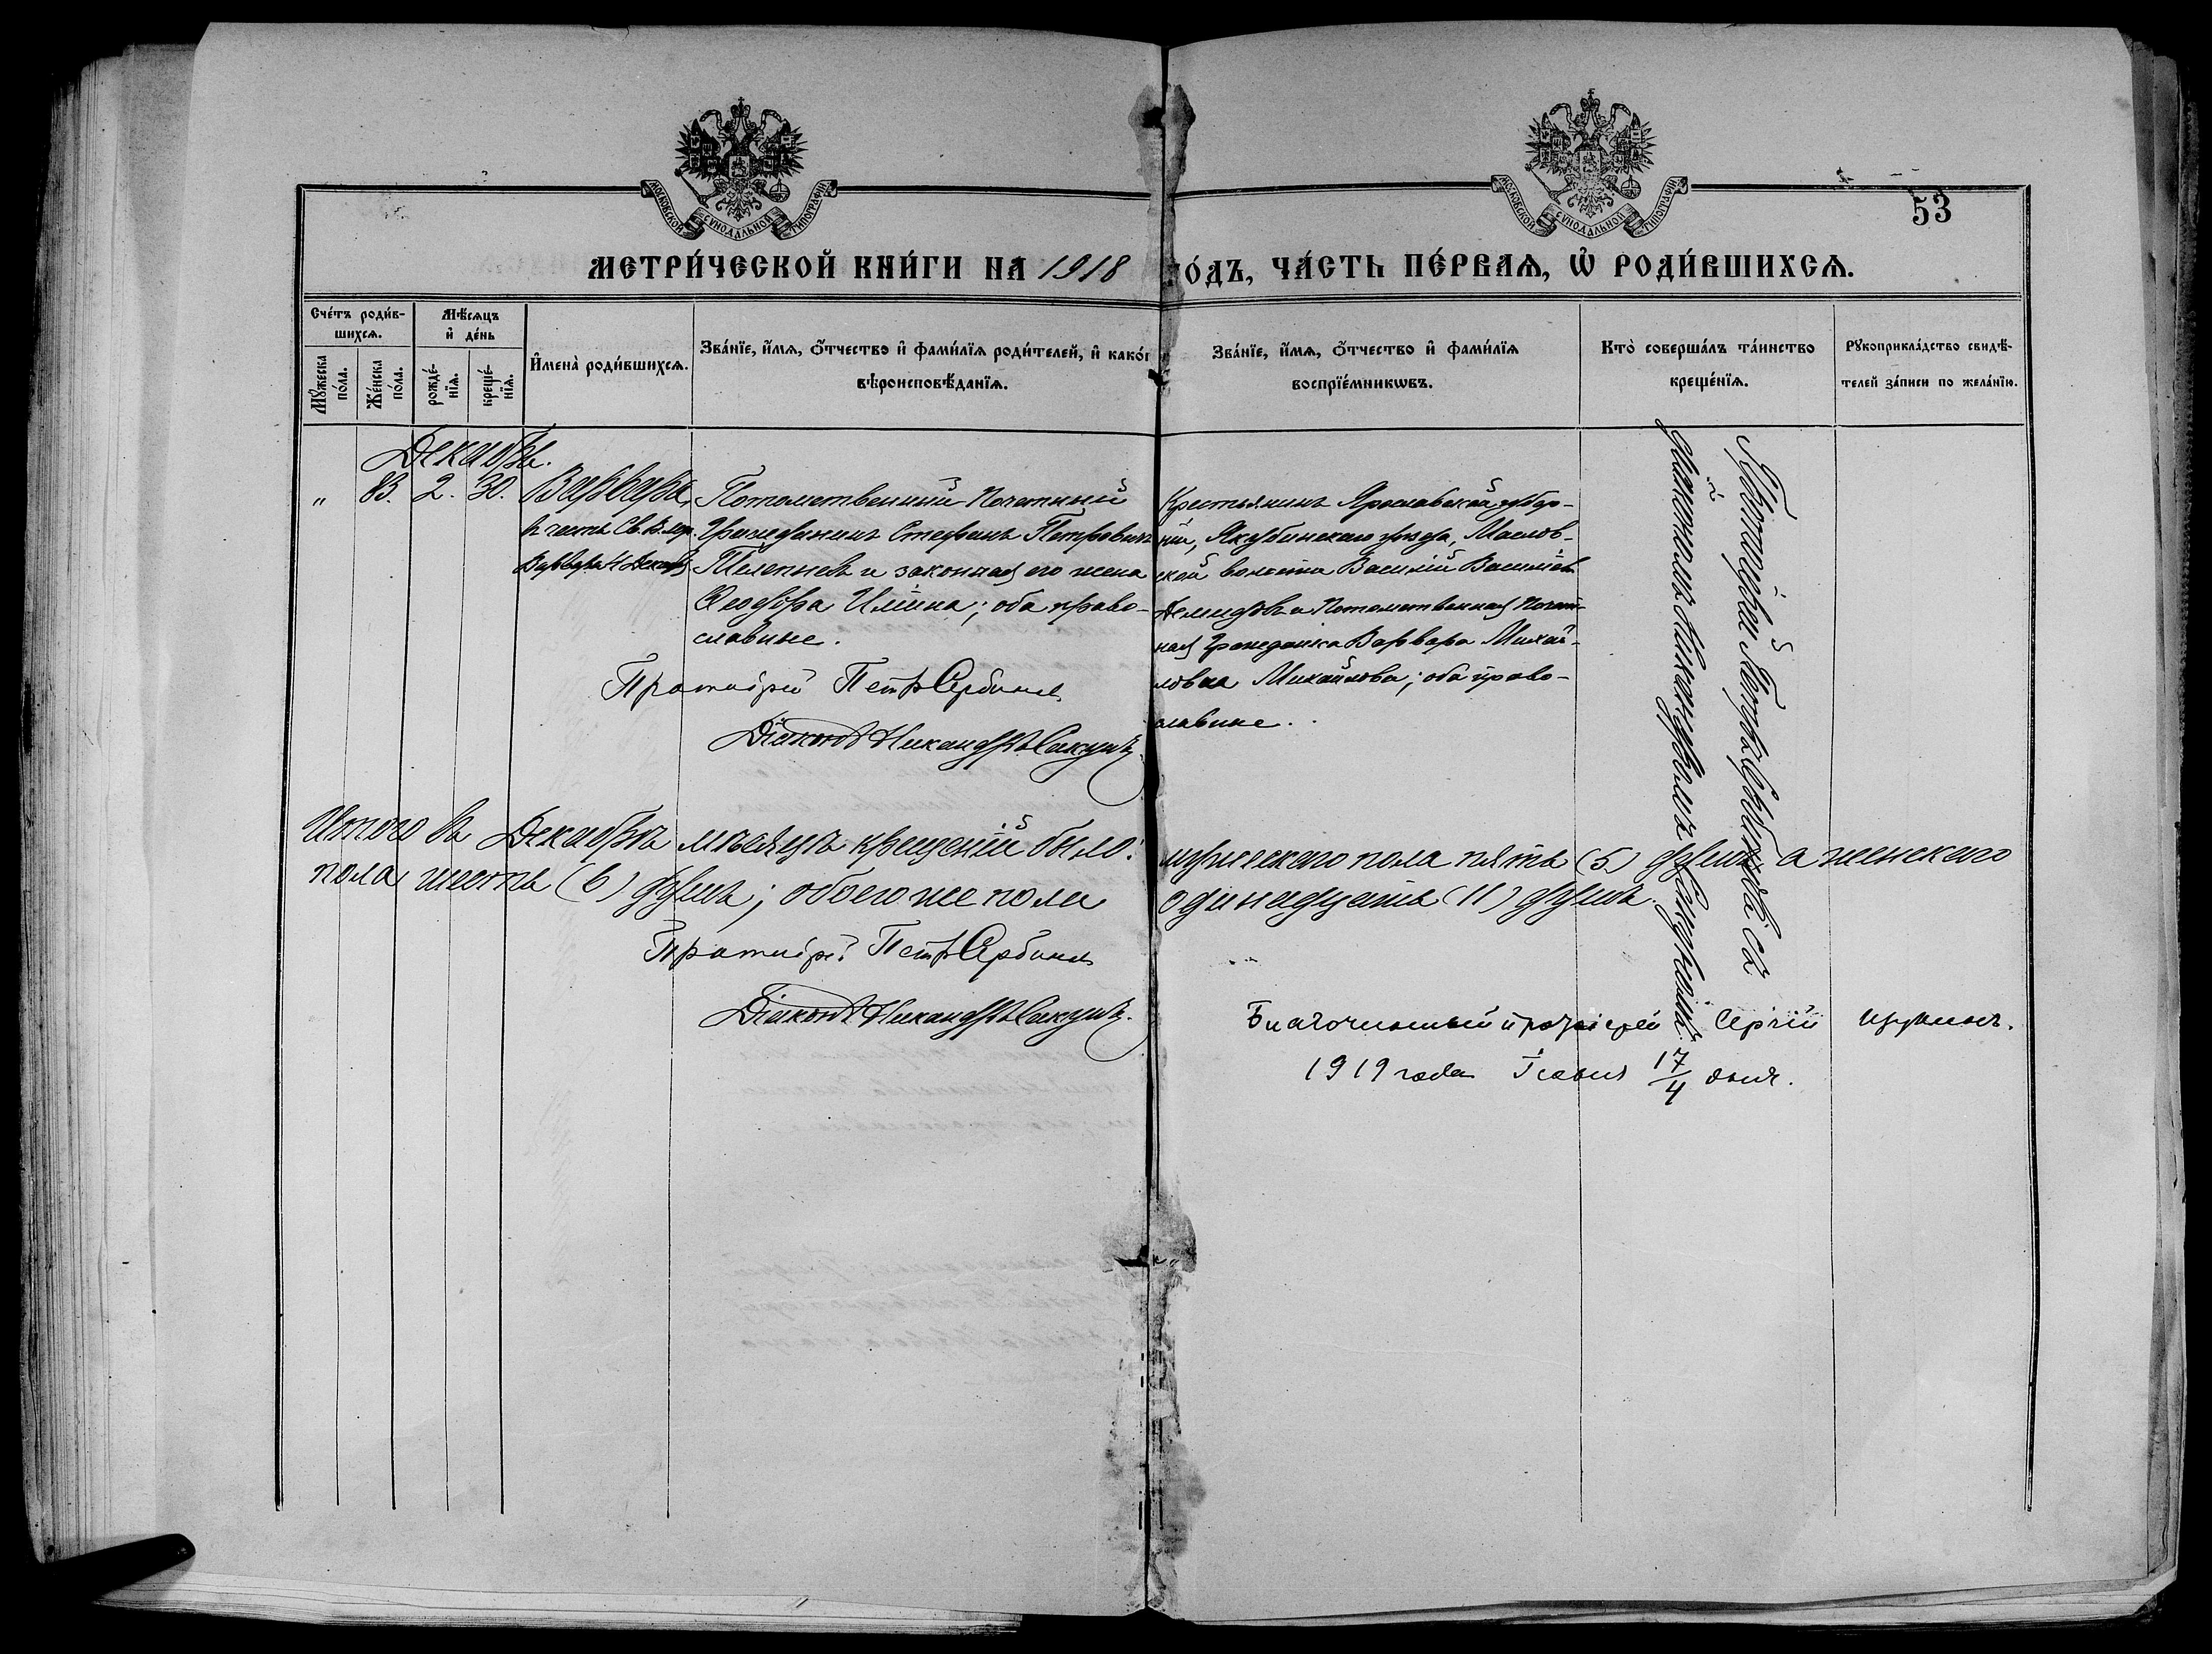 МОСКОВСКОЙ СѴНОДАЛЬНОЙ ТИПОГРАФІИ
МОСКОВСКОЙ СѴНОДАЛЬНОЙ ТИПОГРАФІИ
53
МЕТРИ́ЧЕСКОЙ КНИ́ГИ НА 1918 ГО́ДЪ, ЧА́СТЬ ПЕ́РВАѦ, Ѡ РОДИ́ВШИХСѦ.
Сче́тъ роди́в-
шихсѧ.
Мѣ́сѧцъ
и҆ де́нь
Мꙋ́жеска
по́ла.
Же́нска
по́ла.
рожде́-
нїѧ.
креще́-
нїѧ.
И҆мена̀ роди́вшихсѧ.
Зва́нїе, и҆́мѧ, ѻ҆́тчество и҆ фами́лїѧ роди́телей, и҆ како́г
вѣроисповѣ́данїѧ.
Зва́нїе, и҆́мѧ, ѻ҆́тчество и҆ фами́лїѧ
воспрїе́мникѡвъ.
Кто̀ соверша́лъ та́инство
креще́нїѧ.
Рꙋкоприкла́дство свидѣ́-
телей за́писи по жела́нїю.
Декабрь.
" 83. 2. 30. Варвара,
въ честь Св. В. мр.
Варвары 4 Декабря
Потомственный Почетный
Гражданинъ Стефанъ Петровичъ
Телепневъ и законная его жена
Ѳеодора Ильина; оба право-
славные.
Протоіерей Петръ
Діаконъ Никандръ
Крестьянинъ Ярославской губер-
ніи, уѣзда, Маслов-
ской волости Василій Васильевъ
Демидовъ и Потомственная Почет-
ная Гражданка Варвара Михай-
ловна Михайлова; оба право-
славные.
Протоіерей Петръ съ
Діакономъ Никандромъ
Итого въ Декабрѣ мѣсяцѣ крещеній было: мужескаго пола пять (5) душъ, а женскаго
пола шесть (6) душъ; обоего же пола одинадцать (11) душъ.
Протоіерей Петръ
Діаконъ Никандръ
Благочинный протоіерей Сергій
1919 года 17/4 дня.